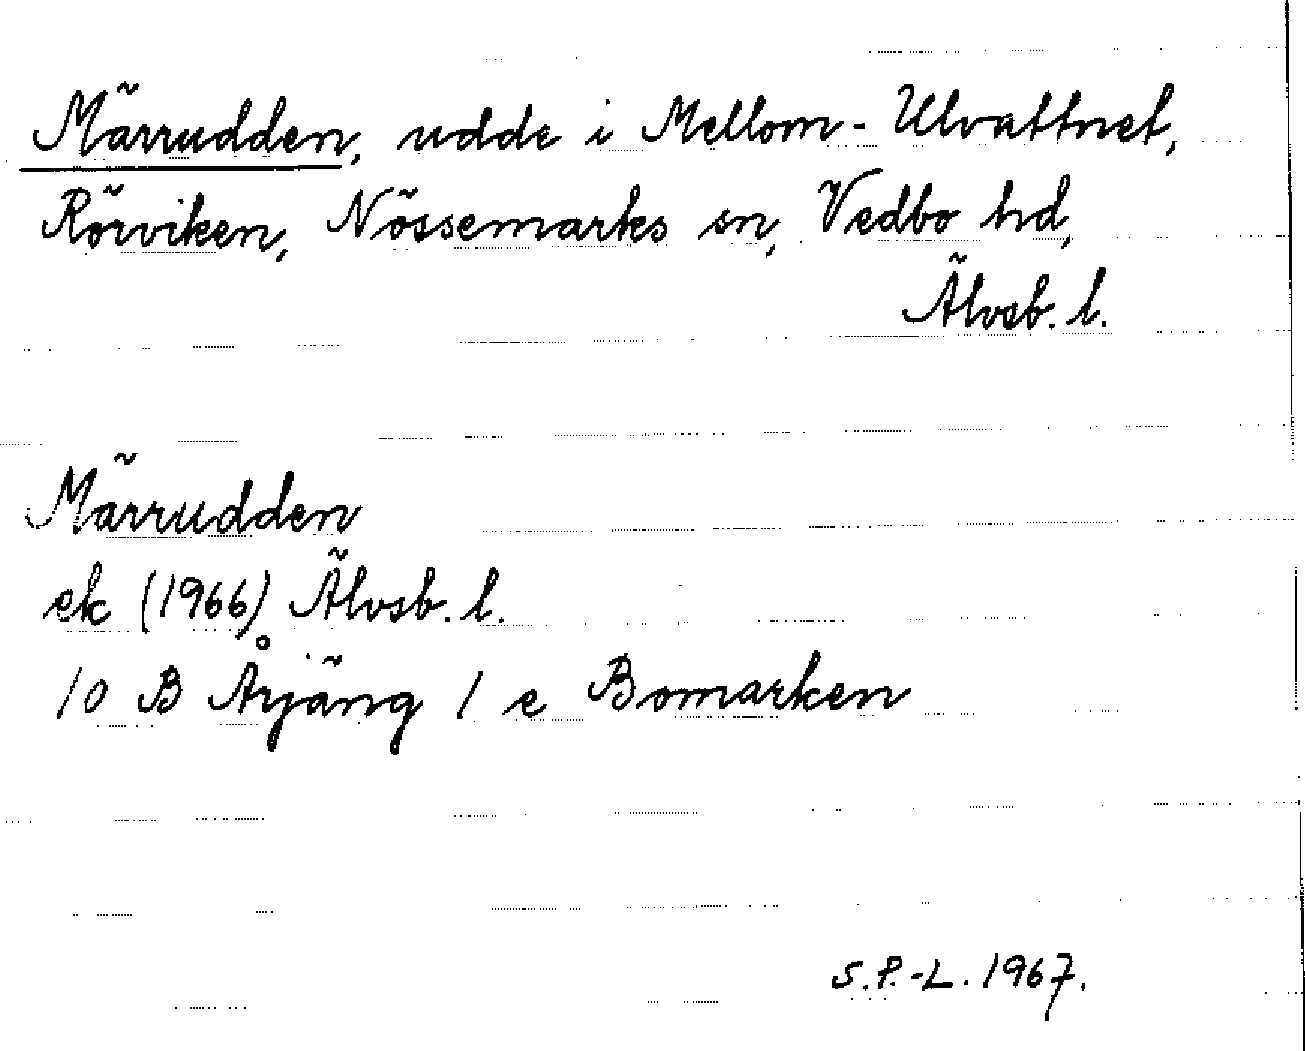 Märrudden, udde i Mellom-Ulvattnet,
Rörviken, Nössemarks sn, Vedbo hd,
Älvsb. l.
Märrudden
ek (1966) Älvsb. l.
10 B Årjäng 1 e Bomarken
S.P.-L. 1967.